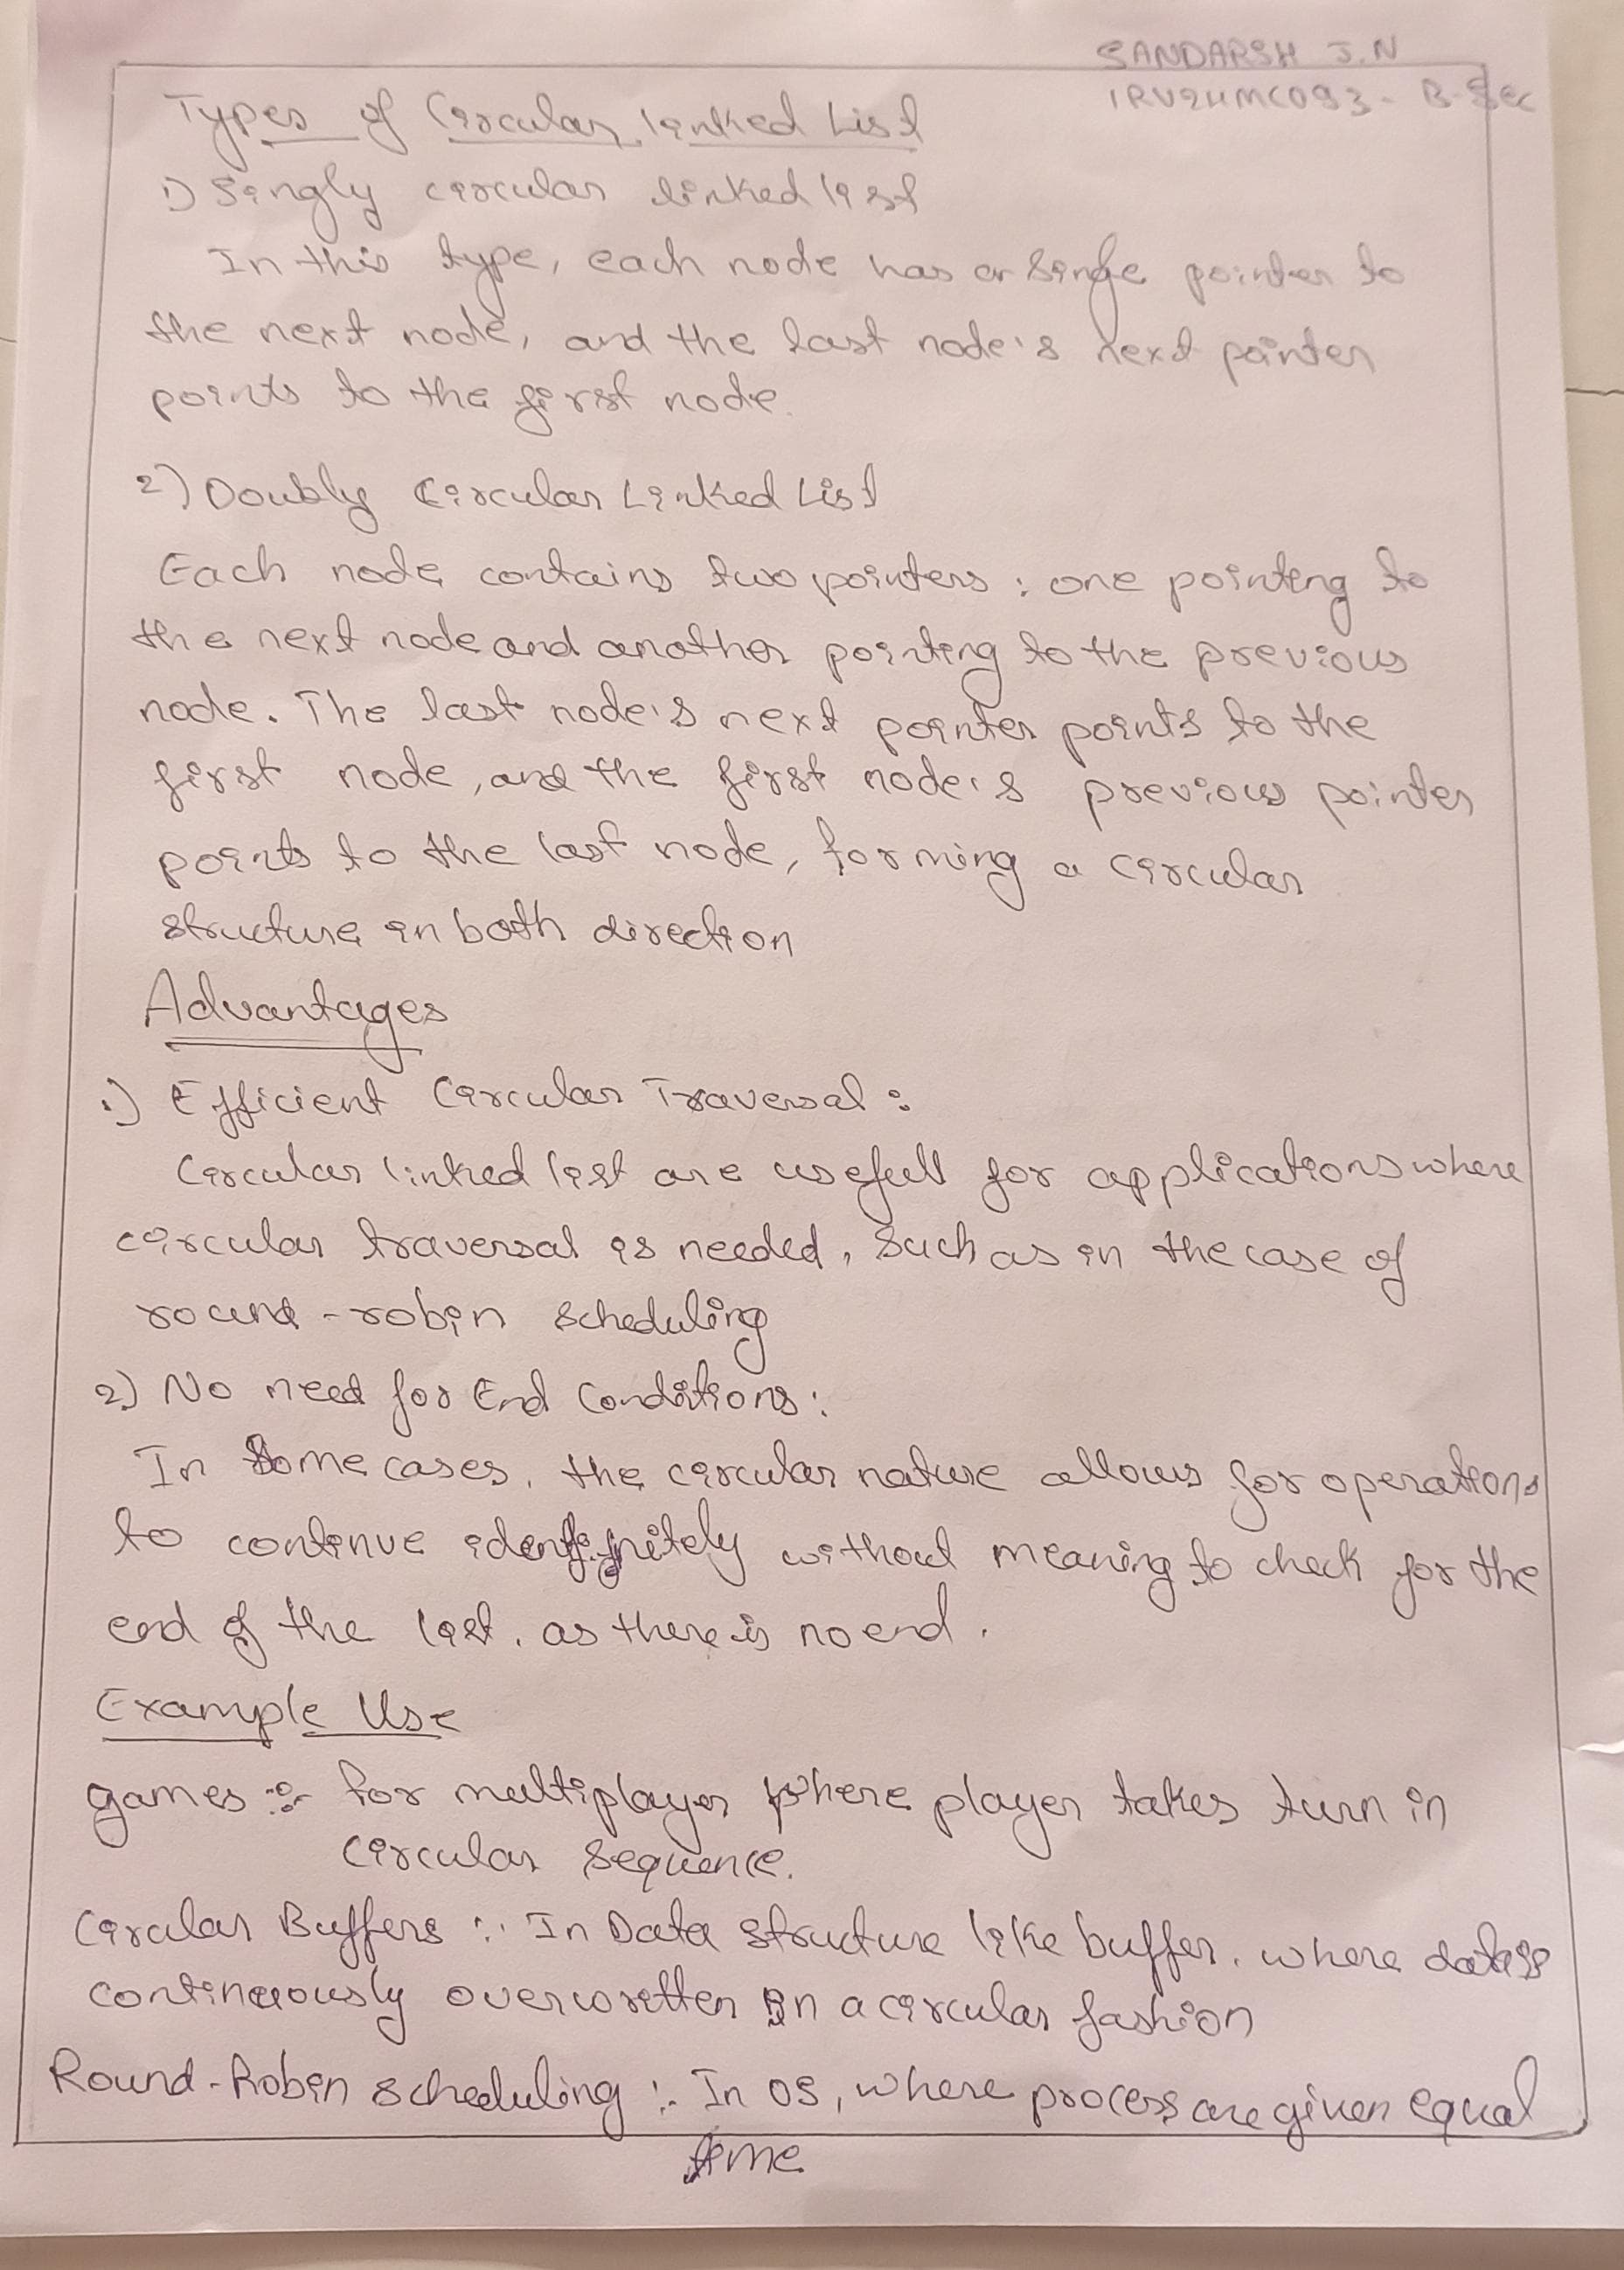 SANDARSH J.N
1RV24MC093 - B-Sec
Types of Circular linked List
1) Singly circular linked list
In this type, each node has a singe pointer to
the next node, and the last node's next pointer
points to the first node.
2) Doubly Circular Linked List
Each node contains two pointers : one pointing to
the next node and another pointing to the previous
node. The last node's next pointer points to the
first node, and the first node's previous pointer
points to the last node, forming a circular
structure in both direction
Advantages
1) Efficient Circular Traversal :
Circular linked list are usefull for applications where
circular traversal is needed, such as in the case of
round - robin scheduling
2) No need for End Conditions :
In some cases, the circular nature allows for operations
to continue without meaning to check for the
end of the list, as there is no end.
Example Use
games :- for multiplayer where player takes turn in
circular sequence.
Circular Buffers :- In Data structure like buffer, where data is
continuously overwritten in a circular fashion
Round-Robin scheduling :- In OS, where process are given equal
time